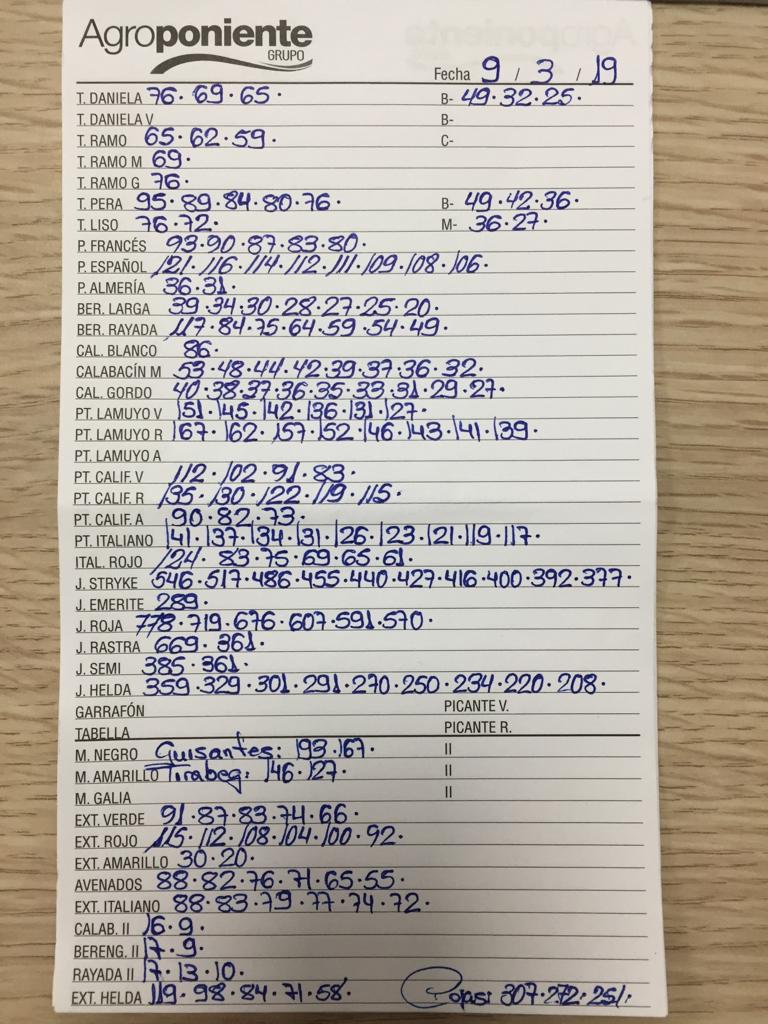 Agroponiente
GRUPO
Fecha 9 / 3 / 19
T. DANIELA 76. 69. 65. B- 49. 32. 25.
T. DANELA V B-
T. RAMO 65. 62. 59. C-
T. RAMO M 69.
T. RAMO G 76.
T. PERA 95. 89. 84. 80. 76. B- 49. 42. 36.
T. LISO 76. 72. M- 36. 27.
P. FRANCÉS 93. 90. 87. 83. 80.
P. ESPAÑOL 121. 116. 114. 112. 111. 109. 108. 106.
P. ALMERÍA 36. 31.
BER. LARGA 39. 34. 30. 28. 27. 25. 20.
BER. RAYADA 117. 84. 75. 64. 59. 54. 49.
CAL. BLANCO 86.
CALABACÍN M 53. 48. 44. 42. 39. 37. 36. 32.
CAL. GORDO 40. 38. 37. 36. 35. 33. 31. 29. 27.
PT. LAMUYO V 151. 145. 142. 136. 131. 127.
PT. LAMUYO R 167. 162. 157. 152. 146. 143. 141. 139.
PT. LAMUYO A
PT. CALIF. V 112. 102. 91. 83.
PT. CALIF. R 135. 130. 122. 119. 115.
PT. CALIF. A 90. 82. 73.
PT. ITALIANO 141. 137. 134. 131. 126. 123. 121. 119. 117.
ITAL. ROJO 124. 83. 75. 69. 65. 61.
J. STRYKE 546. 517. 486. 455. 440. 427. 416. 400. 392. 377.
J. EMERITE 289.
J. ROJA 778. 719. 676. 607. 591. 570.
J. RASTRA 669. 361.
J. SEMI 385. 361.
J. HELDA 359. 329. 301. 291. 270. 250. 234. 220. 208.
GARRAFÓN PICANTE V.
TABELLA PICANTE R.
M. NEGRO Guisantes: 193. 167. II
M. AMARILLO Tirabeq: 146. 127. II
M. GALIA II
EXT. VERDE 91. 87. 83. 74. 66.
EXT. ROJO 115. 112. 108. 104. 100. 92.
EXT. AMARILLO 30. 20.
AVENADOS 88. 82. 76. 71. 65. 55.
EXT. ITALIANO 88. 83. 79. 77. 74. 72.
CALAB. II 16. 9.
BERENG. II 17. 9.
RAYADA II 17. 13. 10.
EXT. HELDA 119. 98. 84. 71. 58. Popsi 307. 272. 251.